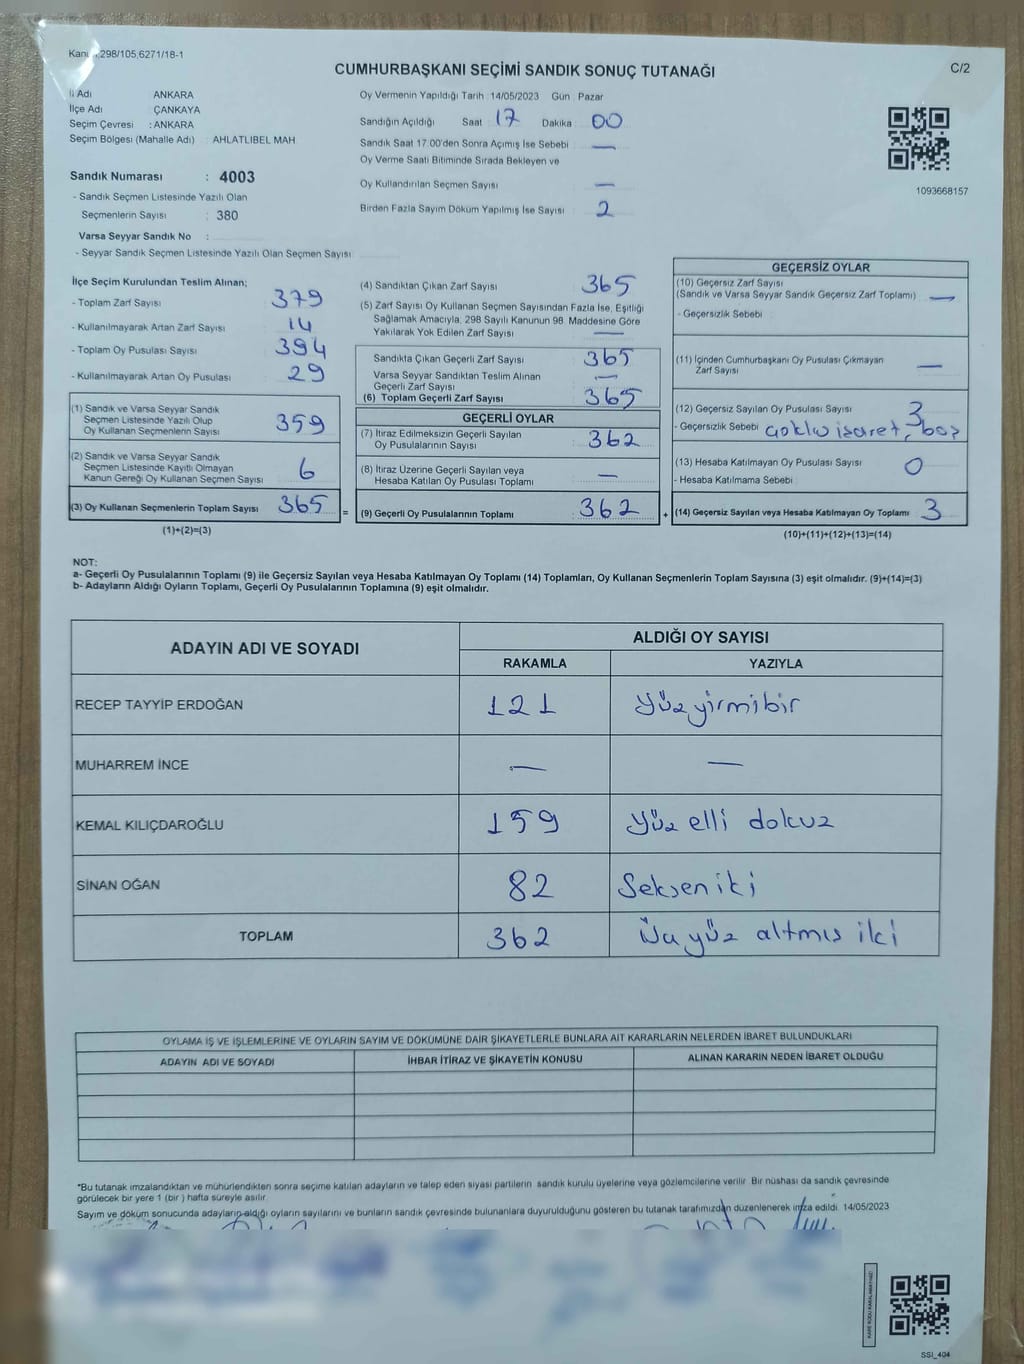 Kanun 298/105,6271/18-1
CUMHURBAŞKANI SEÇİMİ SANDIK SONUÇ TUTANAĞI
C/2
İl Adı ANKARA
İlçe Adı ÇANKAYA
Seçim Çevresi : ANKARA
Seçim Bölgesi (Mahalle Adı) : AHLATLIBEL MAH
Sandık Numarası : 4003
- Sandık Seçmen Listesinde Yazılı Olan
Seçmenlerin Sayısı : 380
Varsa Seyyar Sandık No :
- Seyyar Sandık Seçmen Listesinde Yazılı Olan Seçmen Sayısı
Oy Vermenin Yapıldığı Tarih : 14/05/2023 Gün : Pazar
Sandığın Açıldığı Saat 17 Dakika : 00
Sandık Saat 17:00'den Sonra Açımış İse Sebebi : —
Oy Verme Saati Bitiminde Sırada Bekleyen ve
Oy Kullandırılan Seçmen Sayısı : —
Birden Fazla Sayım Döküm Yapılmış İse Sayısı : 2
1093668157
İlçe Seçim Kurulundan Teslim Alınan;
- Toplam Zarf Sayısı : 379
- Kullanılmayarak Artan Zarf Sayısı : 14
- Toplam Oy Pusulası Sayısı : 394
- Kullanılmayarak Artan Oy Pusulası : 29
(1) Sandık ve Varsa Seyyar Sandık
Seçmen Listesinde Yazılı Olup
Oy Kullanan Seçmenlerin Sayısı : 359
(2) Sandık ve Varsa Seyyar Sandık
Seçmen Listesinde Kayıtlı Olmayan
Kanun Gereği Oy Kullanan Seçmen Sayısı : 6
(3) Oy Kullanan Seçmenlerin Toplam Sayısı : 365
(1)+(2)=(3)
(4) Sandıktan Çıkan Zarf Sayısı : 365
(5) Zarf Sayısı Oy Kullanan Seçmen Sayısından Fazla İse, Eşitliği
Sağlamak Amacıyla, 298 Sayılı Kanunun 98. Maddesine Göre
Yakılarak Yok Edilen Zarf Sayısı : —
Sandıkta Çıkan Geçerli Zarf Sayısı : 365
Varsa Seyyar Sandıktan Teslim Alınan
Geçerli Zarf Sayısı : —
(6) Toplam Geçerli Zarf Sayısı : 365
GEÇERLİ OYLAR
(7) İtiraz Edilmeksizin Geçerli Sayılan
Oy Pusulalarının Sayısı : 362
(8) İtiraz Üzerine Geçerli Sayılan veya
Hesaba Katılan Oy Pusulası Toplamı : —
= (9) Geçerli Oy Pusulalarının Toplamı : 362
GEÇERSİZ OYLAR
(10) Geçersiz Zarf Sayısı
(Sandık ve Varsa Seyyar Sandık Geçersiz Zarf Toplamı) : —
- Geçersizlik Sebebi :
(11) İçinden Cumhurbaşkanı Oy Pusulası Çıkmayan
Zarf Sayısı : —
(12) Geçersiz Sayılan Oy Pusulası Sayısı : 3
- Geçersizlik Sebebi : çoklu işaret, boş
(13) Hesaba Katılmayan Oy Pusulası Sayısı : 0
- Hesaba Katılmama Sebebi
+ (14) Geçersiz Sayılan veya Hesaba Katılmayan Oy Toplamı : 3
(10)+(11)+(12)+(13)=(14)
NOT:
a- Geçerli Oy Pusulalarının Toplamı (9) ile Geçersiz Sayılan veya Hesaba Katılmayan Oy Toplamı (14) Toplamları, Oy Kullanan Seçmenlerin Toplam Sayısına (3) eşit olmalıdır. (9)+(14)=(3)
b- Adayların Aldığı Oyların Toplamı, Geçerli Oy Pusulalarının Toplamına (9) eşit olmalıdır.
ADAYIN ADI VE SOYADI ALDIĞI OY SAYISI
RAKAMLA YAZIYLA
RECEP TAYYİP ERDOĞAN 121 Yüzyirmibir
MUHARREM İNCE — —
KEMAL KILIÇDAROĞLU 159 Yüz elli dokuz
SİNAN OĞAN 82 Seksen iki
TOPLAM 362 Üç yüz altmış iki
OYLAMA İŞ VE İŞLEMLERİNE VE OYLARIN SAYIM VE DÖKÜMÜNE DAİR ŞİKAYETLERLE BUNLARA AİT KARARLARIN NELERDEN İBARET BULUNDUKLARI
ADAYIN ADI VE SOYADI İHBAR İTİRAZ VE ŞİKAYETİN KONUSU ALINAN KARARIN NEDEN İBARET OLDUĞU
*Bu tutanak imzalandıktan ve mühürlendikten sonra seçime katılan adayların ve talep eden siyasi partilerin sandık kurulu üyelerine veya gözlemcilerine verilir. Bir nüshası da sandık çevresinde
görülecek bir yere 1 (bir ) hafta süreyle asılır.
Sayım ve döküm sonucunda adayların aldığı oyların sayılarını ve bunların sandık çevresinde bulunanlara duyurulduğunu gösteren bu tutanak tarafımızdan düzenlenerek imza edildi. 14/05/2023
SSI_404